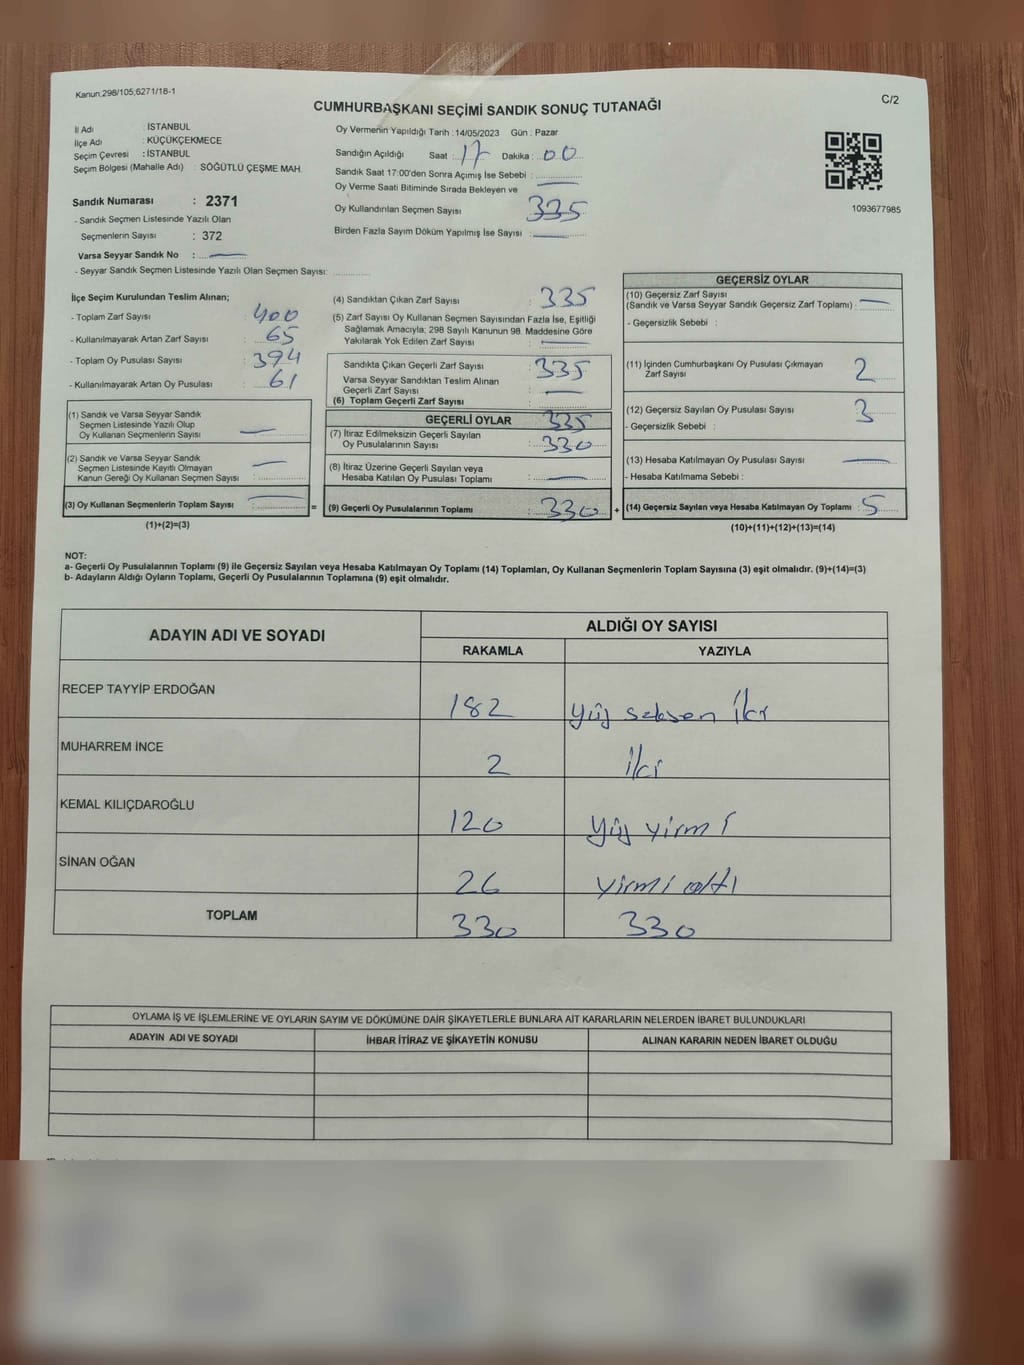 Kanun;298/105;6271/18-1
C/2
CUMHURBAŞKANI SEÇİMİ SANDIK SONUÇ TUTANAĞI
İl Adı : İSTANBUL
İlçe Adı : KÜÇÜKÇEKMECE
Seçim Çevresi : İSTANBUL
Seçim Bölgesi (Mahalle Adı) : SÖĞÜTLÜ ÇEŞME MAH.
Sandık Numarası : 2371
- Sandık Seçmen Listesinde Yazılı Olan
Seçmenlerin Sayısı : 372
Varsa Seyyar Sandık No :
- Seyyar Sandık Seçmen Listesinde Yazılı Olan Seçmen Sayısı:
Oy Vermenin Yapıldığı Tarih :14/05/2023 Gün : Pazar
Sandığın Açıldığı Saat : 17 Dakika : 00
Sandık Saat 17:00'den Sonra Açımış İse Sebebi :
Oy Verme Saati Bitiminde Sırada Bekleyen ve
Oy Kullandırılan Seçmen Sayısı 335
Birden Fazla Sayım Döküm Yapılmış İse Sayısı :
1093677985
İlçe Seçim Kurulundan Teslim Alınan;
- Toplam Zarf Sayısı : 400
- Kullanılmayarak Artan Zarf Sayısı : 65
- Toplam Oy Pusulası Sayısı : 394
- Kullanılmayarak Artan Oy Pusulası : 61
(1) Sandık ve Varsa Seyyar Sandık
Seçmen Listesinde Yazılı Olup
Oy Kullanan Seçmenlerin Sayısı
(2) Sandık ve Varsa Seyyar Sandık
Seçmen Listesinde Kayıtlı Olmayan
Kanun Gereği Oy Kullanan Seçmen Sayısı :
(3) Oy Kullanan Seçmenlerin Toplam Sayısı :
(1)+(2)=(3)
=
(4) Sandıktan Çıkan Zarf Sayısı : 335
(5) Zarf Sayısı Oy Kullanan Seçmen Sayısından Fazla İse, Eşitliği
Sağlamak Amacıyla; 298 Sayılı Kanunun 98. Maddesine Göre
Yakılarak Yok Edilen Zarf Sayısı :
Sandıkta Çıkan Geçerli Zarf Sayısı : 335
Varsa Seyyar Sandıktan Teslim Alınan
Geçerli Zarf Sayısı :
(6) Toplam Geçerli Zarf Sayısı :
GEÇERLİ OYLAR 335
(7) İtiraz Edilmeksizin Geçerli Sayılan
Oy Pusulalarının Sayısı : 330
(8) İtiraz Üzerine Geçerli Sayılan veya
Hesaba Katılan Oy Pusulası Toplamı :
(9) Geçerli Oy Pusulalarının Toplamı : 330
+
GEÇERSİZ OYLAR
(10) Geçersiz Zarf Sayısı
(Sandık ve Varsa Seyyar Sandık Geçersiz Zarf Toplamı) :
- Geçersizlik Sebebi :
(11) İçinden Cumhurbaşkanı Oy Pusulası Çıkmayan
Zarf Sayısı : 2
(12) Geçersiz Sayılan Oy Pusulası Sayısı : 3
- Geçersizlik Sebebi :
(13) Hesaba Katılmayan Oy Pusulası Sayısı :
- Hesaba Katılmama Sebebi :
(14) Geçersiz Sayılan veya Hesaba Katılmayan Oy Toplamı : 5
(10)+(11)+(12)+(13)=(14)
NOT:
a- Geçerli Oy Pusulalarının Toplamı (9) ile Geçersiz Sayılan veya Hesaba Katılmayan Oy Toplamı (14) Toplamları, Oy Kullanan Seçmenlerin Toplam Sayısına (3) eşit olmalıdır. (9)+(14)=(3)
b- Adayların Aldığı Oyların Toplamı, Geçerli Oy Pusulalarının Toplamına (9) eşit olmalıdır.
ADAYIN ADI VE SOYADI
ALDIĞI OY SAYISI
RAKAMLA YAZIYLA
RECEP TAYYİP ERDOĞAN 182 yüz seksen iki
MUHARREM İNCE 2 iki
KEMAL KILIÇDAROĞLU 120 yüz yirmi
SİNAN OĞAN 26 yirmi altı
TOPLAM 330 330
OYLAMA İŞ VE İŞLEMLERİNE VE OYLARIN SAYIM VE DÖKÜMÜNE DAİR ŞİKAYETLERLE BUNLARA AİT KARARLARIN NELERDEN İBARET BULUNDUKLARI
ADAYIN ADI VE SOYADI İHBAR İTİRAZ VE ŞİKAYETİN KONUSU ALINAN KARARIN NEDEN İBARET OLDUĞU